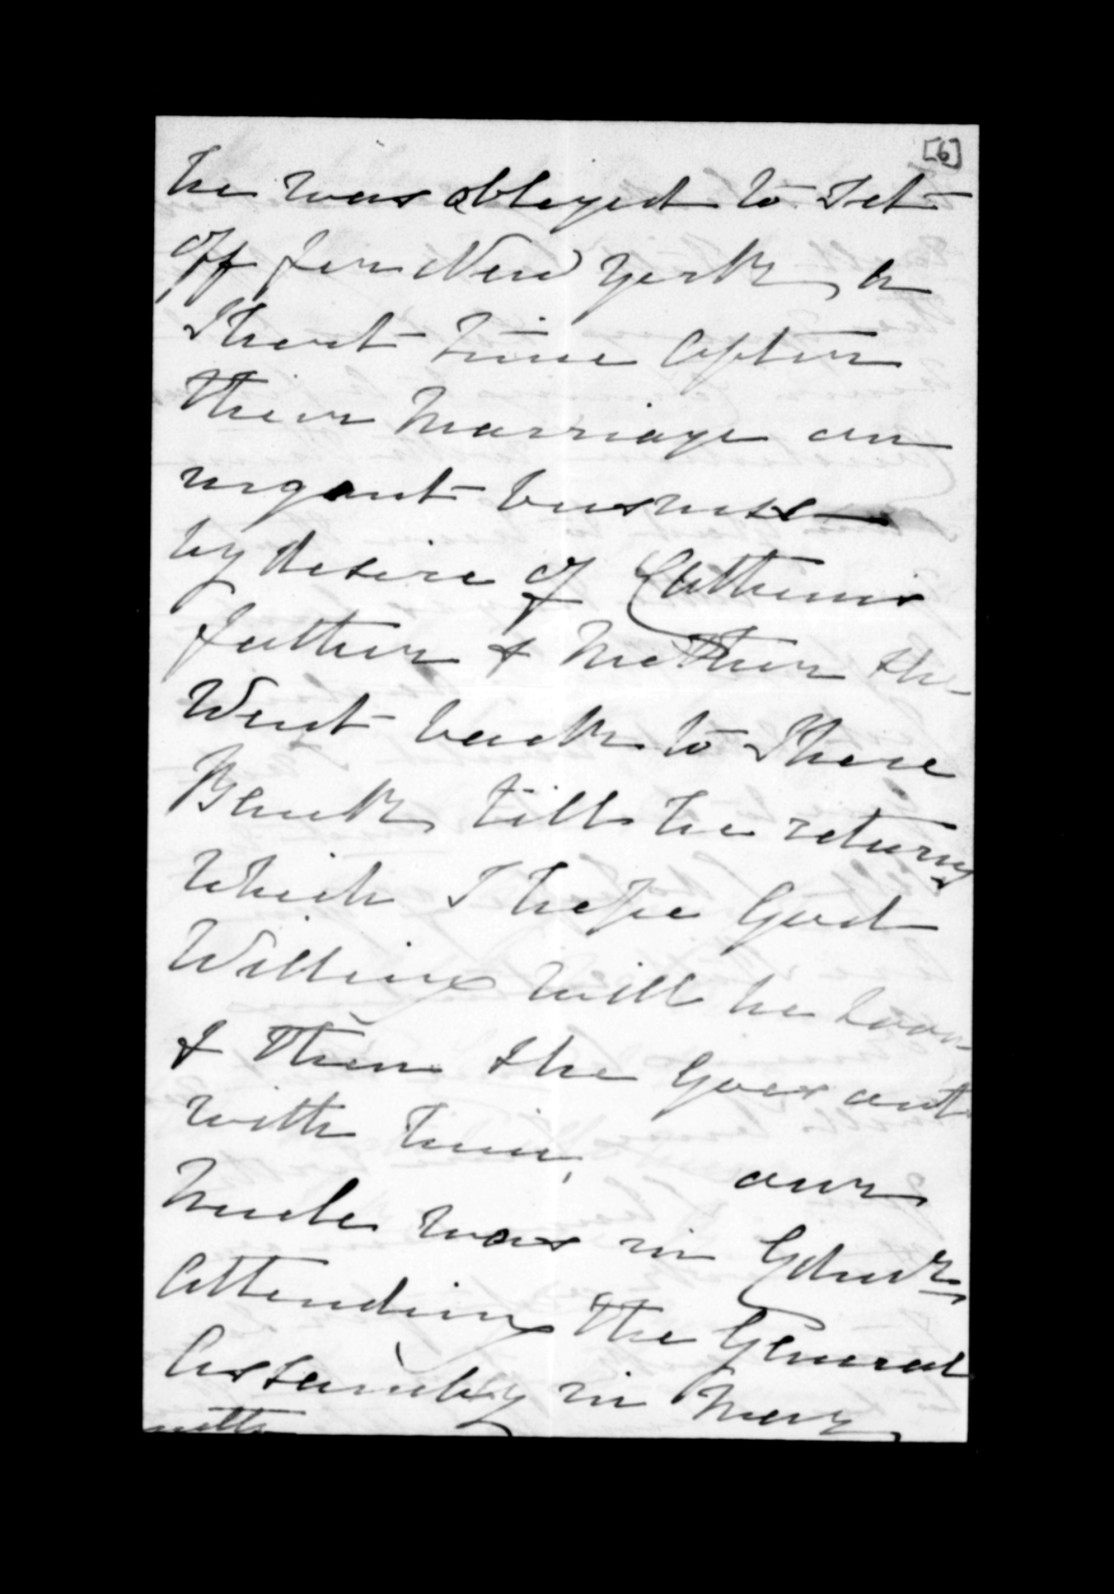 [6]
he was obleyed to Set
Off for New York, a
Short time after
their Marriage on
urgant business
by desire of Catherins
father & Mother she
Went back to Shore
Bank till he returns
Which I hope God
Willing will be soon
& then she Goes out
with him, our
Uncle was in Edinr
Attending the General
Assembly in May
with